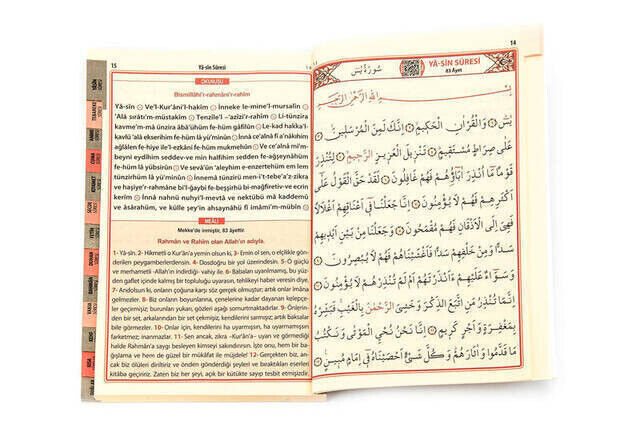 14
YÂ-SÎN SÛRESİ
83 Âyet
سُورَةُ يٰسٓ
بِسْمِ اللّٰهِ الرَّحْمٰنِ الرَّحِيمِ
يٰسٓ ۞ وَالْقُرْاٰنِ الْحَكِيمِ ۞ اِنَّكَ لَمِنَ الْمُرْسَلِينَ ۞
عَلٰى صِرَاطٍ مُسْتَقِيمٍ ۞ تَنْزِيلَ الْعَزِيزِ الرَّحِيمِ ۞ لِتُنْذِرَ
قَوْمًا مَٓا اُنْذِرَ اٰبَٓاؤُهُمْ فَهُمْ غَافِلُونَ ۞ لَقَدْ حَقَّ الْقَوْلُ عَلٰٓى
اَكْثَرِهِمْ فَهُمْ لَا يُؤْمِنُونَ ۞ اِنَّا جَعَلْنَا فٓى اَعْنَاقِهِمْ اَغْلَالًا
فَهِيَ اِلَى الْاَذْقَانِ فَهُمْ مُقْمَحُونَ ۞ وَجَعَلْنَا مِنْ بَيْنِ اَيْدِيهِمْ
سَدًّا وَمِنْ خَلْفِهِمْ سَدًّا فَاَغْشَيْنَاهُمْ فَهُمْ لَا يُبْصِرُونَ ۞
وَسَوَٓاءٌ عَلَيْهِمْ ءَاَنْذَرْتَهُمْ اَمْ لَمْ تُنْذِرْهُمْ لَا يُؤْمِنُونَ ۞
اِنَّمَا تُنْذِرُ مَنِ اتَّبَعَ الذِّكْرَ وَخَشِيَ الرَّحْمٰنَ بِالْغَيْبِ فَبَشِّرْهُ
بِمَغْفِرَةٍ وَاَجْرٍ كَرِيمٍ ۞ اِنَّا نَحْنُ نُحْيِ الْمَوْتٰى وَنَكْتُبُ
مَا قَدَّمُوا وَاٰثَارَهُمْ وَكُلَّ شَيْءٍ اَحْصَيْنَاهُ فٓى اِمَامٍ مُبِينٍ ۞
15
Yâ-sîn Sûresi
OKUNUŞU
Bismillâhi'r-rahmâni'r-rahîm
Yâ-sîn ۞ Ve'l-Kur'âni'l-hakîm ۞ İnneke le-mine'l-mürsalîn ۞
'Alâ sırâtı'm-müstakîm ۞ Tenzîle'l -'azîzi'r-rahîm ۞ Li-tünzira
kavme'm-mâ ünzira âbâ'ühüm fe-hüm gâfilûn ۞ Le-kad hakka'l-
kavlü 'alâ ekserihim fe-hüm lâ yü'minûn ۞ İnnâ ce'alnâ fî a'nâkıhim
ağlâlen fe-hiye ile'l-ezkâni fe-hüm mukmehûn ۞ Ve ce'alnâ mi'm-
beyni eydîhim sedden-ve-min halfihim sedden fe-ağşeynâhüm
fe-hüm lâ yübsırûn ۞ Ve sevâ'ün 'aleyhim e-enzertehüm em lem
tünzirhüm lâ yü'minûn ۞ İnnemâ tünziru meni't-tebe'a'z-zikra
ve haşiye'r-rahmâne bi'l-ğaybi fe-beşşirhü bi-mağfiretiv-ve ecrin
kerîm ۞ İnnâ nahnü nuhyi'l-mevtâ ve nektübü mâ kaddemû
ve âsârahüm, ve külle şey'in ahsaynâhü fî imâmi'm-mübîn ۞
MEÂLİ
Mekke'de inmiştir, 83 âyettir.
Rahmân ve Rahîm olan Allah'ın adıyla.
1- Yâ-sîn, 2- Hikmetli o Kur'ân'a yemin olsun ki, 3- Emin ol sen, o elçilikle gönde-
rilen peygamberlerdensin. 4- Dosdoğru bir yol üzerindesin. 5- O güçlü
ve merhametli -Allah'ın indirdiği- vahiy ile. 6- Babaları uyarılmamış, bu yüz-
den gaflet içinde kalmış bir topluluğu uyarasın, tehlikeyi haber veresin diye.
7- Andolsun ki, onların çoğuna karşı söz gerçek olmuştur; artık onlar imâna
gelmezler. 8- Biz onların boyunlarına, çenelerine kadar dayanan kelepçe-
ler geçirmişiz; burunları yukarı, gözleri aşağı somurtmaktadırlar. 9- Önlerin-
den bir set, arkalarından bir set çekmişiz, kendilerini sarmışız; artık baksalar-
bile görmezler. 10- Onlar için, kendilerini ha uyarmışsın, ha uyarmamışsın
farketmez; inanmazlar. 11- Sen ancak, zikra -Kur'ân'a - uyan ve görmediği
halde Rahmân'a saygı besleyen kimseyi sakındırırsın. İşte onu, hem bir ba-
ğışlama ve hem de güzel bir mükâfat ile müjdele! 12- Gerçekten biz, an-
cak biz ölüleri diriltiriz ve önden gönderdikleri ve bıraktıkları eserleri
kitâba geçiririz. Zaten biz her şeyi, açık bir kütükte sayıp tesbit etmişizdir.